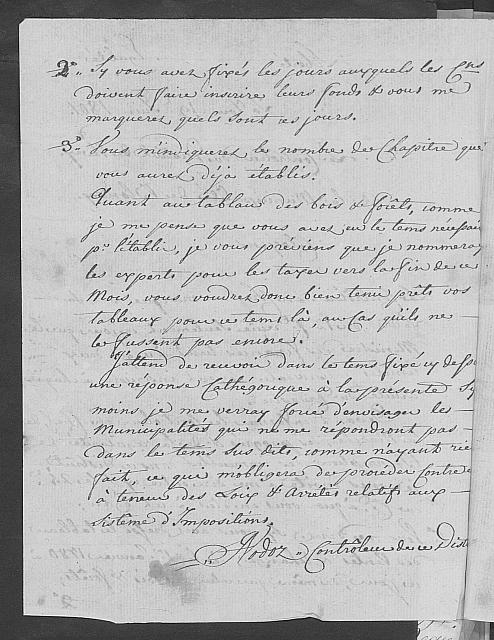 2°. Sy vous avez fixés les jours auxquels les Cns
doivent faire inscrire leurs fonds & vous me
marquerez quels sont ces jours.
3°. Vous m'indiquerez le nombre de Chapitre que
vous aurez déja établis.
Quant au tableau des bois & forêts, comme
je me pense que vous avez eu le tems nécessai
pr. l'établir, je vous préviens que je nommeray
les experts pour les taxer vers la fin de ce
Mois, vous voudrez donc bien tenir prêts vos
tableaux pour ce tems là, au cas qu'ils ne
le fussent pas encore.
J'attend de recevoir dans le tems fixé cy dess
une réponse Cathégorique à la présente Sy
moins je me verray forcé d'envisager les
Municipalités qui ne me répondront pas
dans le tems sus dits, comme n'ayant rie
fait, ce qui m'obligera de procéder Contre
à teneur des Loix & Arrêtés relatif aux
Sistème d'Impositions.
Contrôleur de ce Dist